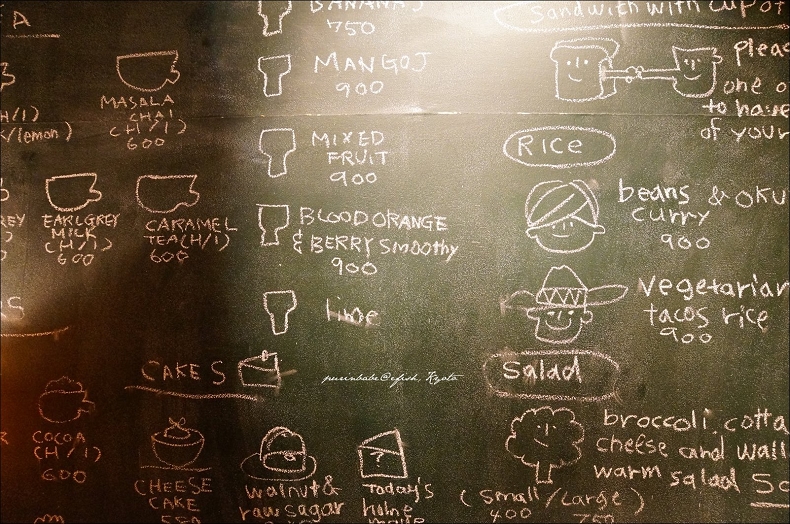 A
(H/I)
/lemon)
MASALA
CHAI
(H/I)
600
EARLGREY
MILK
(H/I)
600
CARAMEL
TEA(H/I)
600
COCOA
(H/I)
600
BANANAJ
750
MANGOJ
900
MIXED
FRUIT
900
BLOODORANGE
& BERRY SMOOTHY
900
lime
CAKES
CHEESE
CAKE
550
walnut&
rawsagar
?
Today's
home
made
purinbabe@efish, Kyoto
Sandwith with cup of
pleas
one o
to have
of your
Rice
beans & OKU
curry
900
Vegetarian
tacos rice
900
Salad
broccoli, cotta
cheese and wall
warm salad
(small/large)
400 750
So